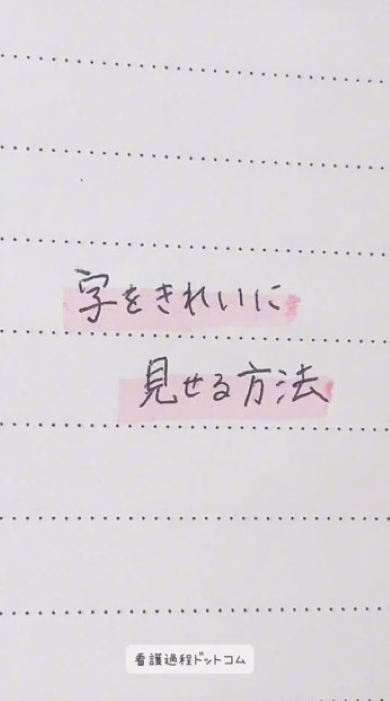 字をきれいに
見せる方法
看護過程ドットコム